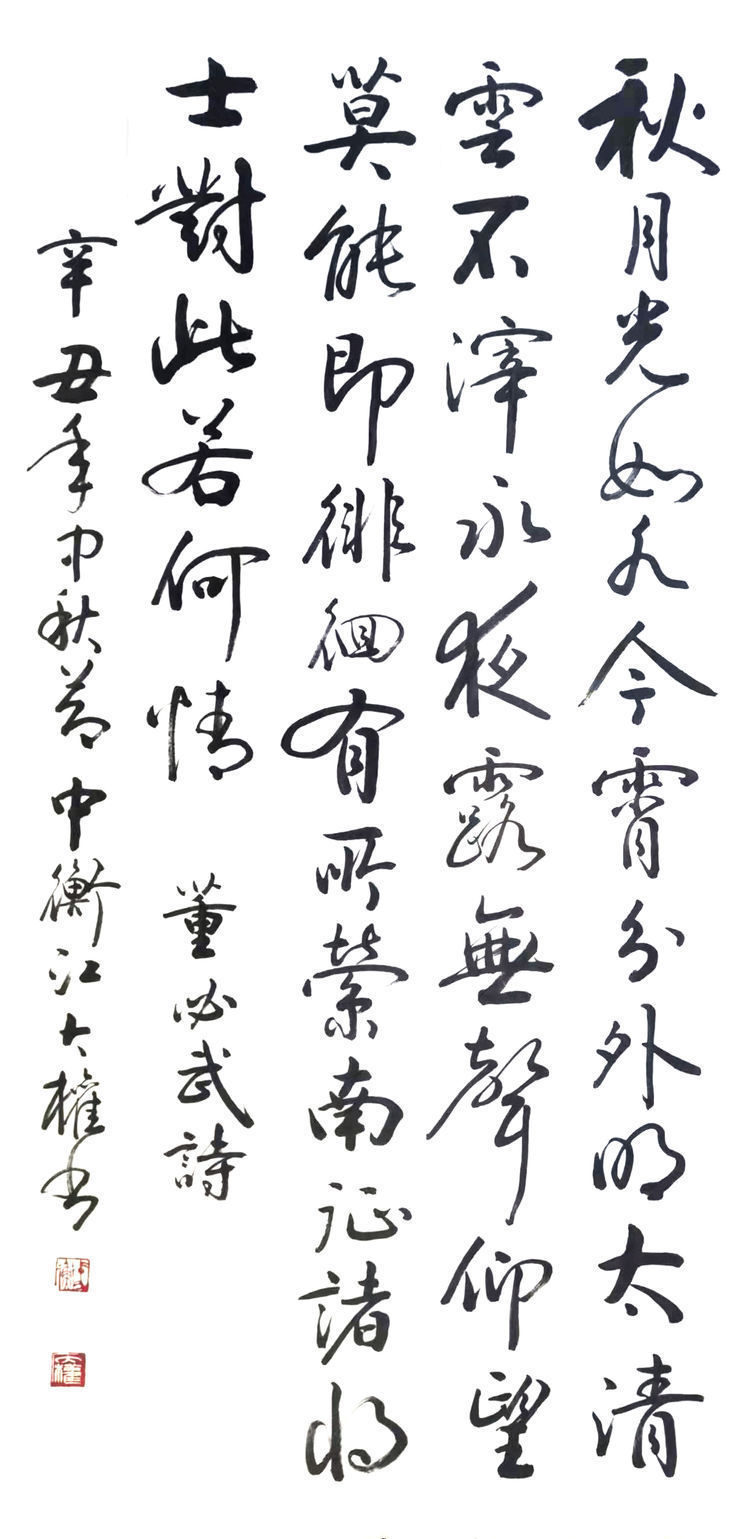 秋月光如水今霄分外明太清
雲不滓永夜露無聲仰望
莫能即徘徊有所縈南征諸将
士對此若何情 董必武詩
辛丑年中秋节中衡江大權书